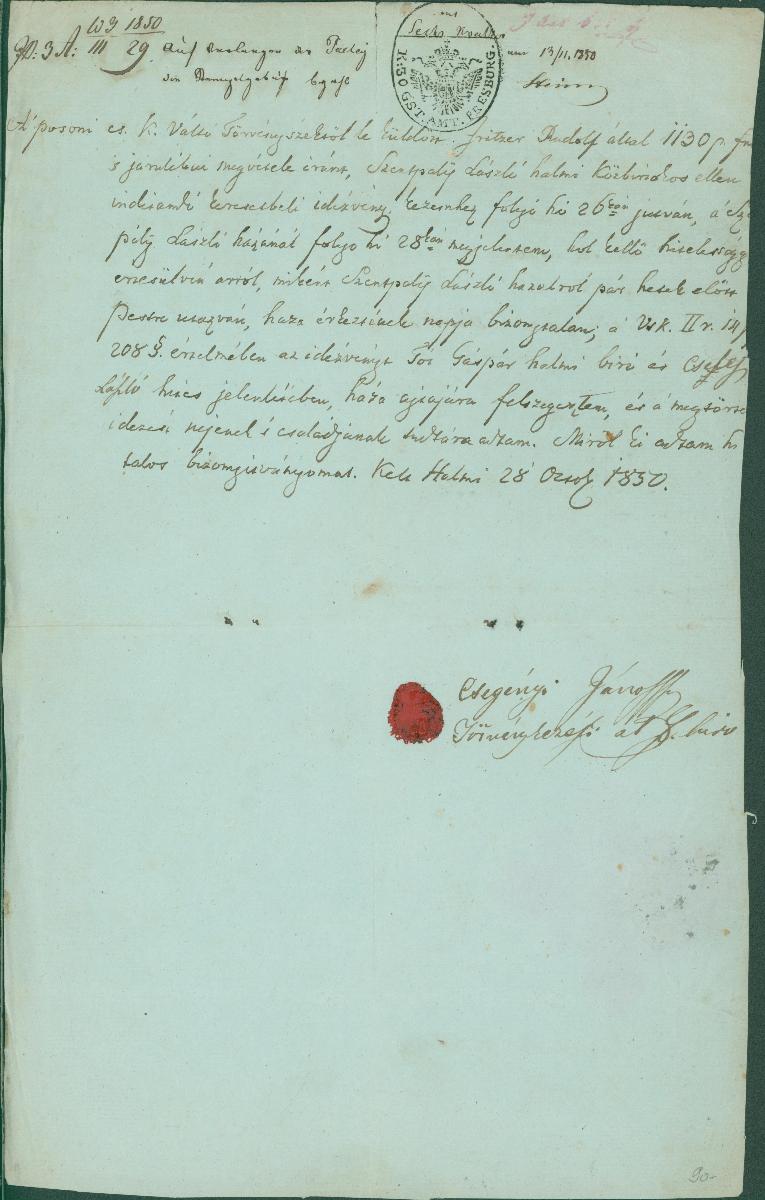 WG 1850
III 29. Auf Verlangen der Partey
mit
Sechs Kreutz
am 13/11. 1850
K: 50 GST. AMT. PRESBURG.
A' posoni cs. k. Váltó Törvényszéktöl le küldött Fritzer Rudolf által 1130 p. fr
s járulékai megvétele iránt, Szentpály László halmi Közbirtokos ellen
inditandó keresetbeli idézvény kezemhez folyó hó 26kán jutván, a Sze
pály László házánál folyó hó 28kán megjelentem, hol kellő hitelességg
értesülvén arról, miként Szentpály László hazulról pár hetek előtt
Pestre utazván, haza érkezésének napja bizonytalan; a Vtk. II r. 14
208 §. értelmében az idézvényt Gáspár halmi biró és
László hites jelenlétében, háza ajtajára felszegeztem, és a megtörté
idézést nejének s családjának tudtára adtam. Miről ki adtam hi
talos bizonyitványomat. Kelt Halmi 28 Octob 1850.
Csegényi János
Törvénykezési al biró
90-